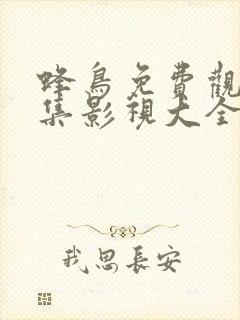 蜂鳥免費觀
集影視大全
我思長安